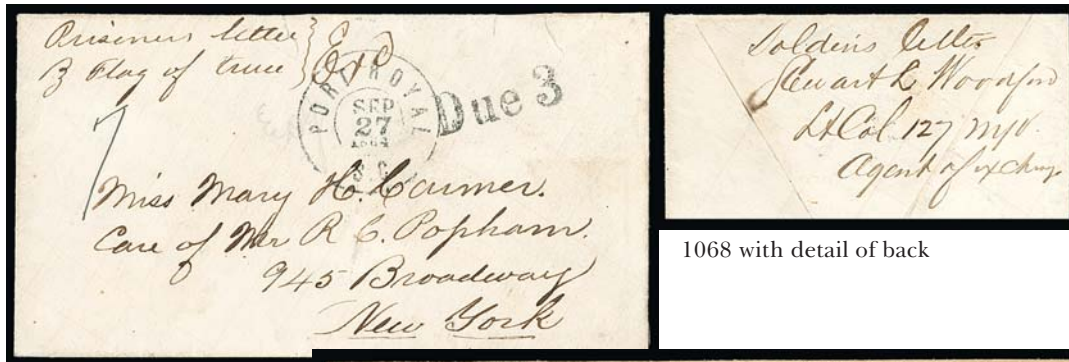 Prisoners letter
By Flag of truce
Exd
PORT ROYAL
SEP
27
1864
S.C.
Due 3
Miss Mary H. Carmer.
Care of Mr R C. Popham.
945 Broadway
New York
Soldiers letter
Stewart L Woodford
Lt Col. 127 NYV.
Agent of exchange
1068 with detail of back